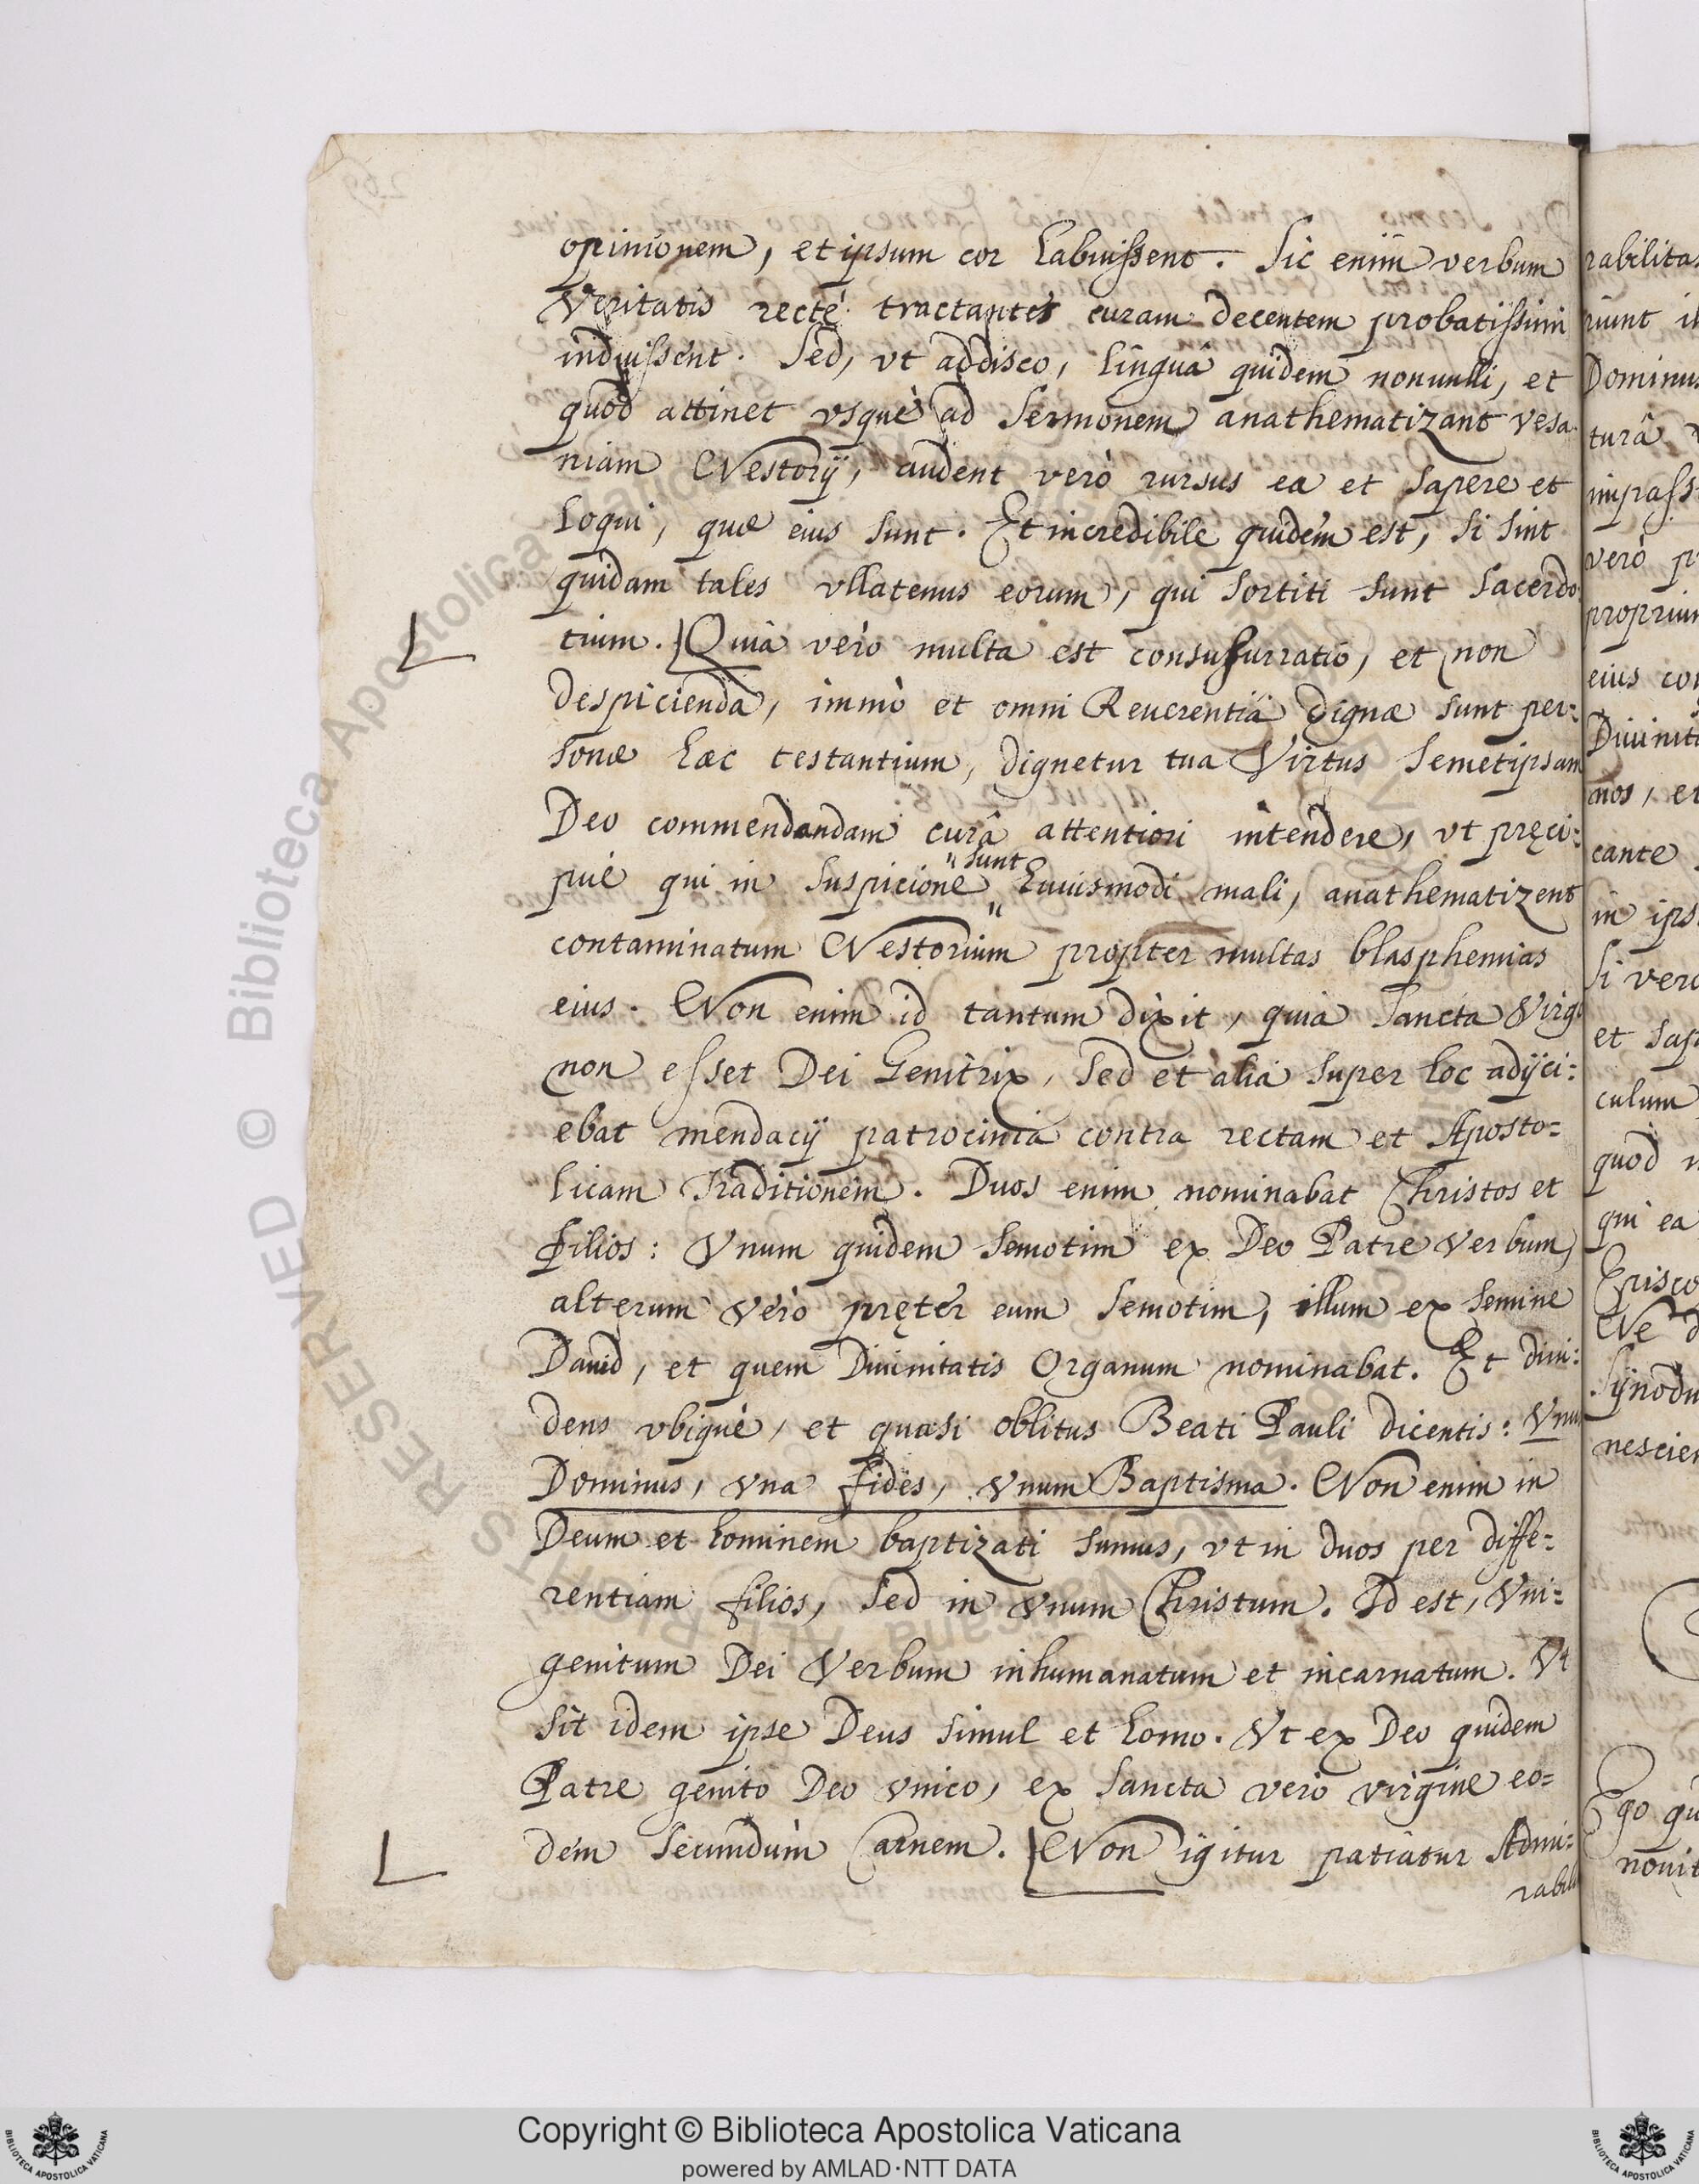 opinionem, et ipsum cor habuissent. Sic enim verbum
Veritatis rectè tractantes curam decentem probatissimi
induissent. Sed, vt addisco, linguâ quidem nonnulli, et
quod attinet vsquè ad Sermonem anathematizant vesa
niam Nestorij, audent verò rursus ea et sapere et
loqui, quæ eius sunt. Et incredibile quidem est, si sint
quidam tales vllatenus eorum, qui sortiti sunt Sacerdo
tium. Quia verò multa est consusurratio, et non
despicienda, immò et omni Reuerentiâ dignæ sunt per:
sonæ hæc testantium, dignetur tua Virtus semetipsam
Deo commendandam curâ attentiori intendere, vt pręci:
puè qui in suspicione " sunt " huiusmodi mali, anathematizent
contaminatum Nestorium propter multas blasphemias
eius. Non enim id tantum dixit, quia Sancta Virgo
non esset Dei Genitrix, sed et alia super hoc adijci:
ebat mendacij patrocinia contra rectam et Aposto=
licam Traditionem. Duos enim nominabat Christos et
filios: Vnum quidem semotim ex Deo Patre Verbum,
alterum verò pręter eum semotim, illum ex semine
Dauid, et quem Diuinitatis Organum nominabat. Et diui:
dens vbiquè, et quasi oblitus Beati Pauli dicentis: Vnu
Dominus, vna fides, vnum Baptisma. Non enim in
Deum et hominem baptizati sumus, vt in duos per diffe=
rentiam filios, sed in vnum Christum. Id est, Vni=
genitum Dei Verbum inhumanatum et incarnatum. Vt
sit idem ipse Deus simul et homo. Vt ex Deo quidem
Patre genito Deo vnico, ex Sancta verò virgine eo=
dem secundùm Carnem. Non igitur patiatur Admi=
rabili
rabilitas
riunt
Dominus
turâ
impass
verò
proprium
eius
Diuinit
nos, et
cante
in ips
Si vero
et sap
culum
quod
qui ea
Episco
Ne
Synodu
nescien
Ego qu
nouit
© Biblioteca Apostolica Vaticana
ALL RIGHTS RESERVED
Copyright © Biblioteca Apostolica Vaticana
powered by AMLAD·NTT DATA
BIBLIOTECA APOSTOLICA VATICANA
BIBLIOTECA APOSTOLICA VATICANA